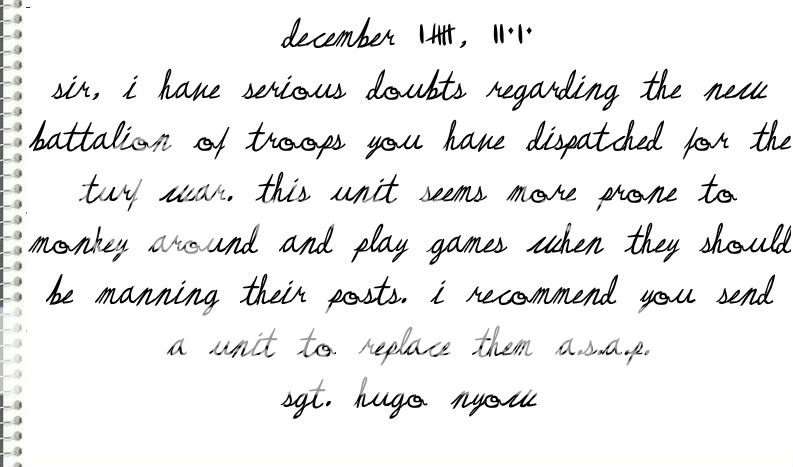 december 𝍷卌, 11·1·
sir, i have serious doubts regarding the new
battalion of troops you have dispatched for the
turf war. this unit seems more prone to
monkey around and play games when they should
be manning their posts. i recommend you send
a unit to replace them a.s.a.p.
sgt. hugo nyow